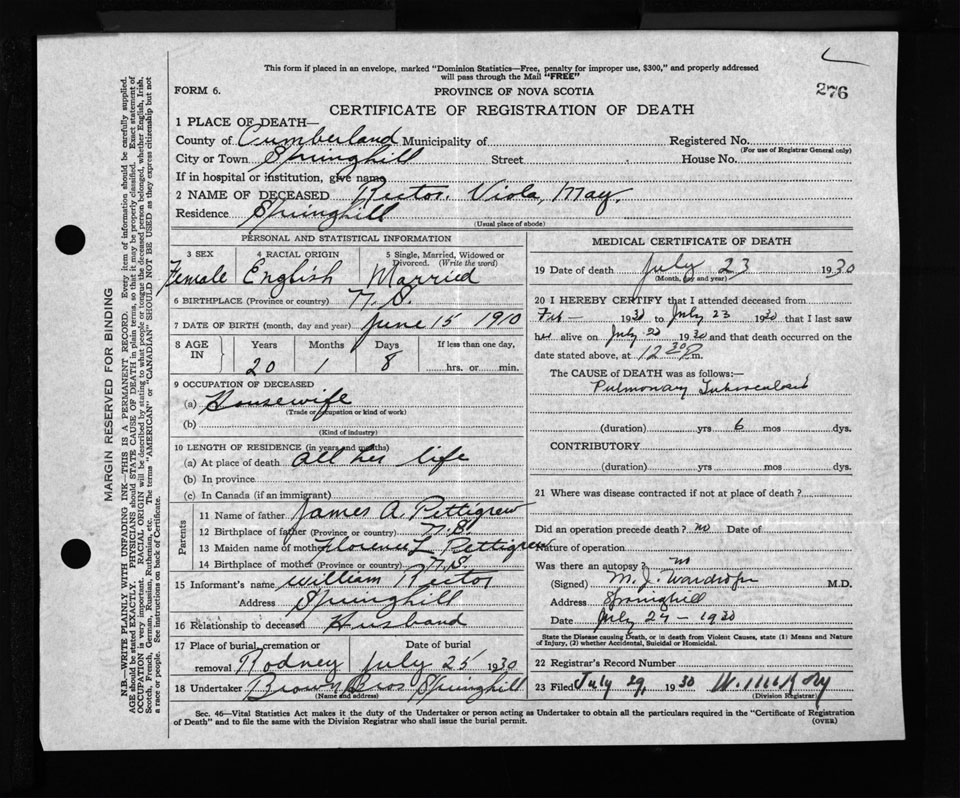 This form if placed in an envelope, marked "Dominion Statistics—Free, penalty for improper use, $300," and properly addressed
will pass through the Mail "FREE"
276
FORM 6.
PROVINCE OF NOVA SCOTIA
CERTIFICATE OF REGISTRATION OF DEATH
1 PLACE OF DEATH—
County of Cumberland Municipality of Registered No.
(For use of Registrar General only)
City or Town Springhill Street House No.
If in hospital or institution, give name
2 NAME OF DECEASED Rector. Viola, May.
Residence Springhill
(Usual place of abode)
PERSONAL AND STATISTICAL INFORMATION
3 SEX Female
4 RACIAL ORIGIN English
5 Single, Married, Widowed or
Divorced. (Write the word)
Married
6 BIRTHPLACE (Province or country) N.S.
7 DATE OF BIRTH (month, day and year) June 15 1910
8 AGE IN
Years Months Days If less than one day,
20 1 8 hrs. or min.
9 OCCUPATION OF DECEASED
(a) Housewife
(Trade or occupation or kind of work)
(b)
(Kind of industry)
10 LENGTH OF RESIDENCE (in years and months)
(a) At place of death all her life
(b) In province
(c) In Canada (if an immigrant)
Parents
11 Name of father James A. Pettigrew
12 Birthplace of father (Province or country) N.B.
13 Maiden name of mother Florence L Pettigrew
14 Birthplace of mother (Province or country) N.S.
15 Informant's name William Rector
Address Springhill
16 Relationship to deceased Husband
17 Place of burial, cremation or Date of burial
removal Rodney July 25 1930
18 Undertaker Brown Bros Springhill
(Name and address)
MEDICAL CERTIFICATE OF DEATH
19 Date of death July 23 1930
(Month, day and year)
20 I HEREBY CERTIFY that I attended deceased from
Feb — 1930 to July 23 1930 that I last saw
her alive on July 1930 and that death occurred on the
date stated above, at 12 30 P.m.
The CAUSE OF DEATH was as follows:
Pulmonary Tuberculosis
(duration) yrs 6 mos dys.
CONTRIBUTORY
(duration) yrs. mos. dys.
21 Where was disease contracted if not at place of death?
Did an operation precede death? no Date of
Nature of operation
Was there an autopsy? no
(Signed) M. J. Wardrope M.D.
Address Springhill
Date July 1930
State the Disease causing Death, or in death from Violent Causes, state (1) Means and Nature
of Injury, (2) whether Accidental, Suicidal or Homicidal.
22 Registrar's Record Number
23 Filed July 29, 1930
(Division Registrar)
Sec. 46—Vital Statistics Act makes it the duty of the Undertaker or person acting as Undertaker to obtain all the particulars required in the "Certificate of Registration
of Death" and to file the same with the Division Registrar who shall issue the burial permit.
(OVER)
MARGIN RESERVED FOR BINDING
N.B.—WRITE PLAINLY WITH UNFADING INK—THIS IS A PERMANENT RECORD. Every item of information should be carefully supplied.
AGE should be stated EXACTLY. PHYSICIANS should STATE CAUSE OF DEATH in plain terms, so that it may be properly classified. Exact statement of
OCCUPATION is very important. RACIAL ORIGIN will be described by stating to what people or tongue the deceased person belonged, whether English, Irish,
Scotch, French, German, Russian, Ruthenian, etc. The terms "AMERICAN" or "CANADIAN" SHOULD NOT BE USED as they express citizenship but not
a race or people. See instructions on back of Certificate.